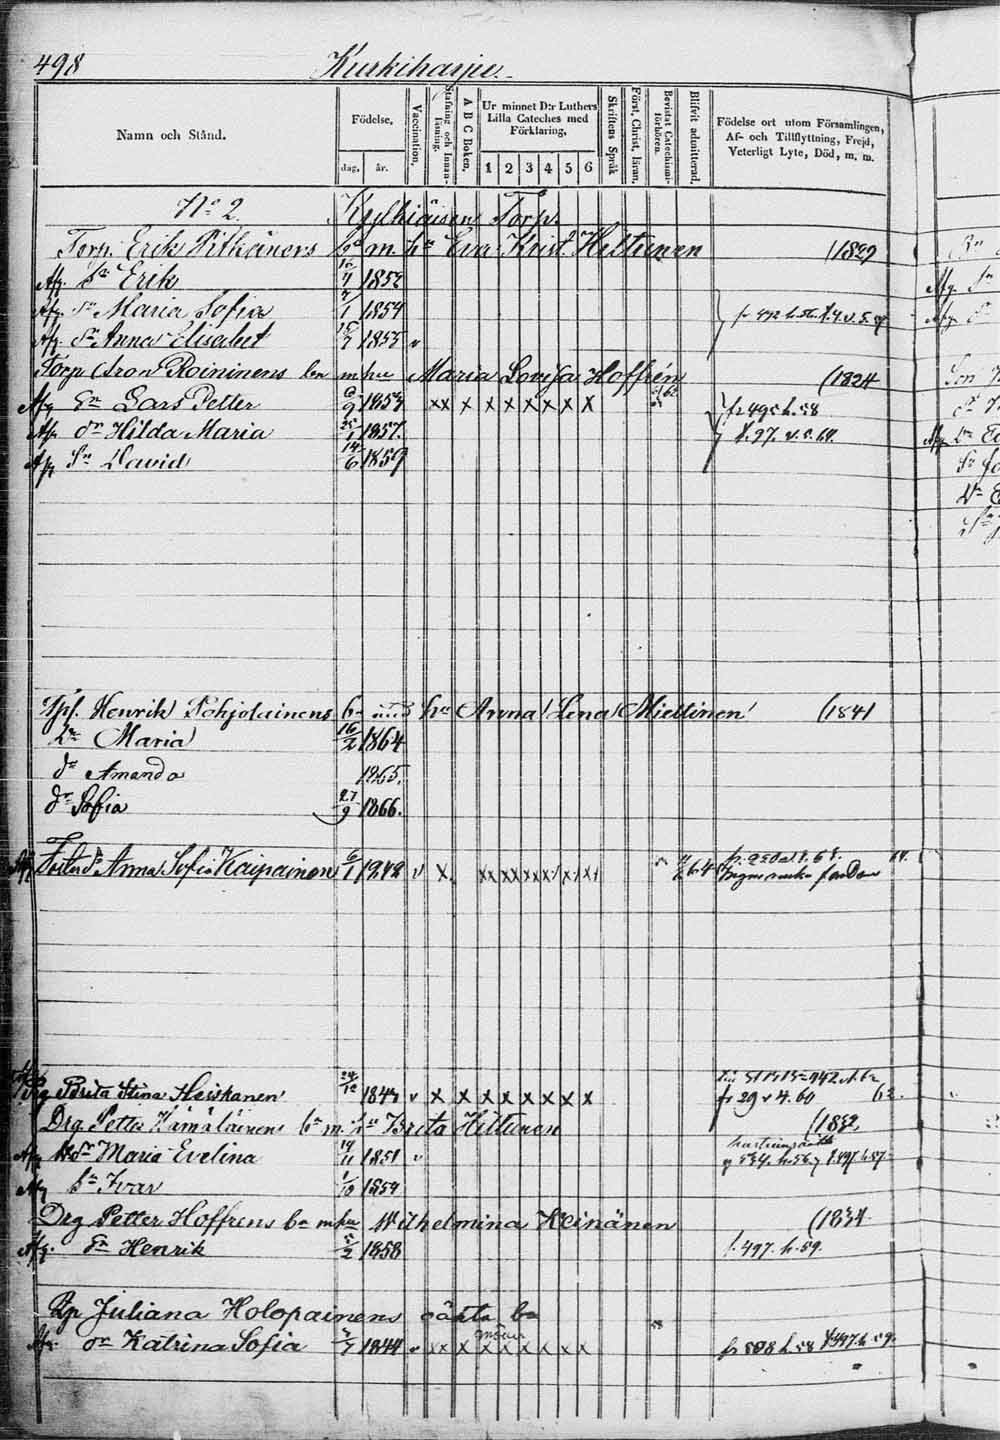 498 Kurkiharju.
Namn och Stånd. Födelse, dag, år. Vaccination, Stafning och Innanläsning. A B C Boken, Ur minnet D:r Luthers Lilla Cateches med Förklaring, 1 2 3 4 5 6 Skriftens Språk Först, Christ, läran. Bevistat Catechismiförhören. Blifvit admitterad. Födelse ort utom Församlingen, Af- och Tillflyttning, Frejd, Veterligt Lyte, Död, m. m.
No 2. Kylliäisen Torp.
Torp. Erik Pitkäners bn m. hu Eva Krist. Hiltunen (1829
Afg. Sn Erik 16/4 1852
Afg. Dr Maria Sofia 7/1 1854
Afg. Dr Anna Elisabet 1855 v
Torp Aron Roininens bn m hu Maria Lovisa Hoffrén (1824
Afg Sn Lars Petter 6/9 1853 xx x x x x x x x fr 495 h. 58
Afg dr Hilda Maria 25/1 1857.
Afg Sn David 14/6 1859
Spf. Henrik Pohjolainens bn med hu Anna Lena Miettinen (1841
Dr Maria 16/2 1864
dr Amanda 1865.
dr Sofia 27/9 1866.
Afg Foster dr Anna Sofia Kaipainen 6/1 1848 v x. xx xx xx x x xx 64
Drg Brita Stina Heiskanen 24/12 1843 v x x x x x x x x fr 29 v 4. 60 62.
Drg Petter Hämäläinens bn m. hu Brita Hiltunen (1832.
Afg dr Maria Evelina 19/11 1851 v
Afg Sn Ivar 1/10 1854
Drg Petter Hoffrens bn m hu Wilhelmina Heinänen (1834
Afg. Sn Henrik 5/2 1858 f. 497. h. 59.
Pig Juliana Holopainens oäkta bn
Afg. dr Katrina Sofia 1844 v xx x x x x x x x h 58 f 497 h 59.